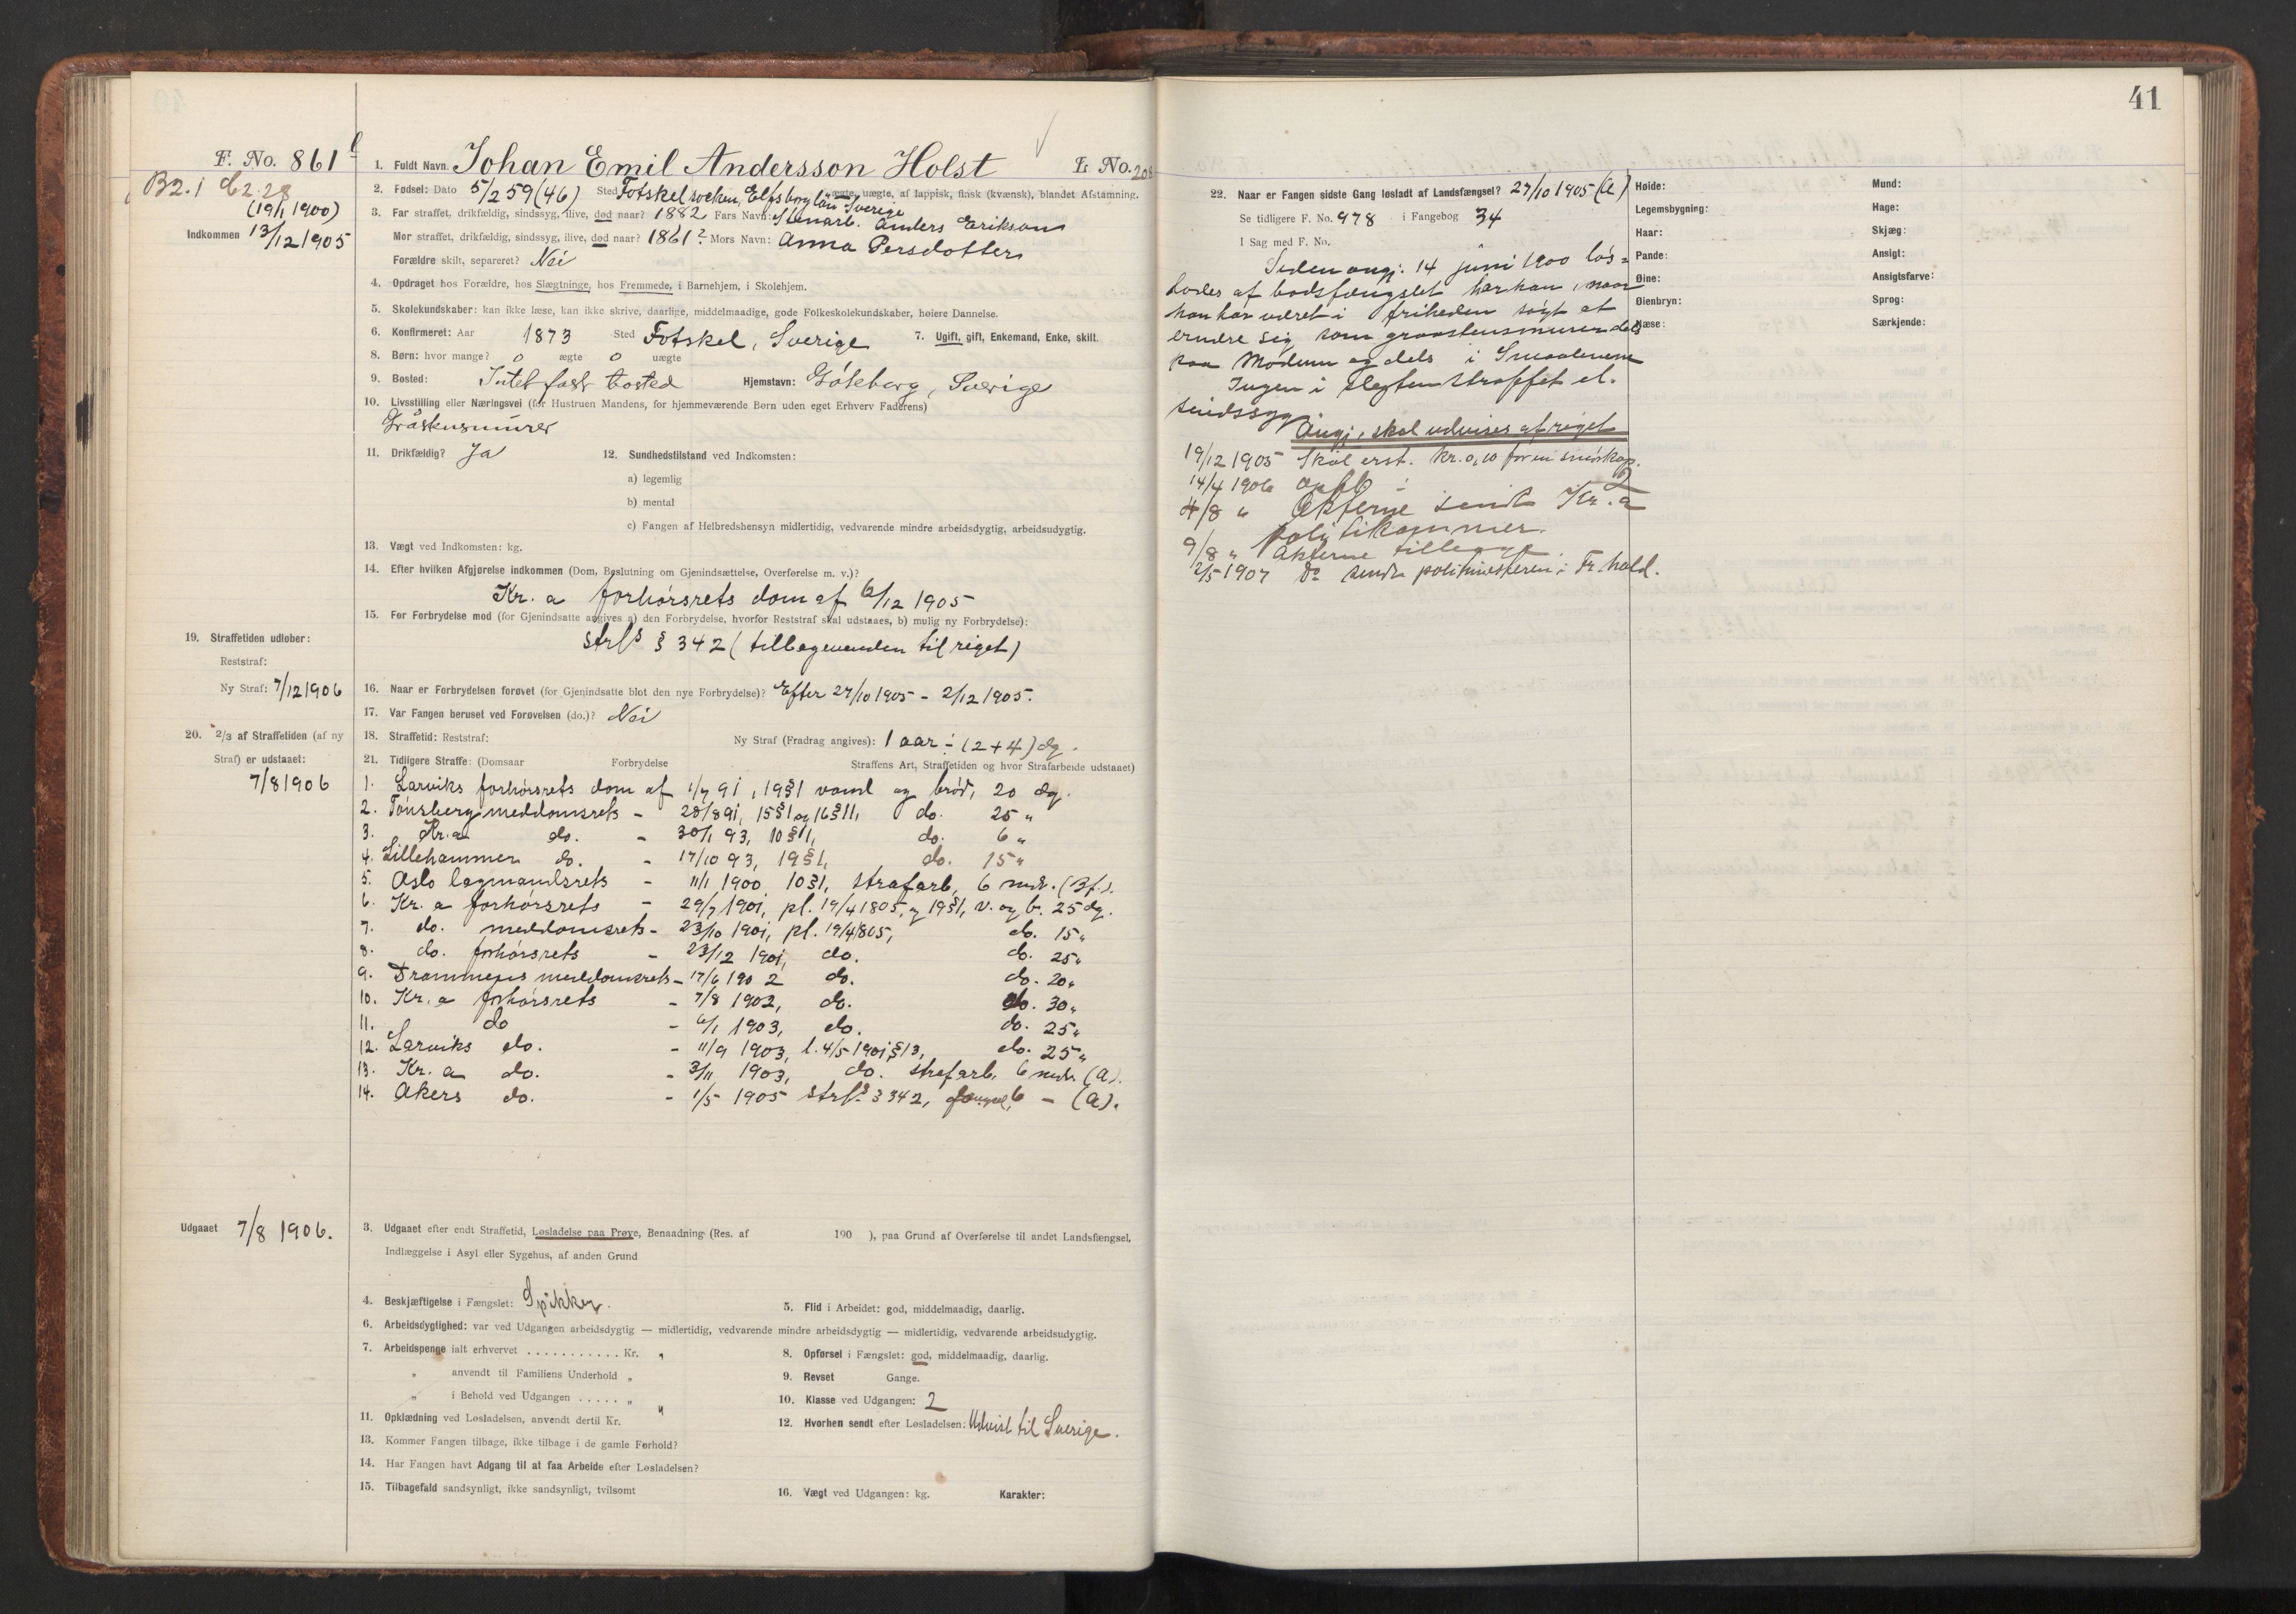 F. No. 861 b
B2.1 C2.28
(19/1 1900)
Indkommen 13/12 1905
1. Fuldt Navn. Johan Emil Andersson Holst L No. 208
2. Fødsel: Dato 5/2 59 (46) Sted Fotskel socken, Elfsborg län Sverige ægte, uægte, af lappisk, finsk (kvænsk), blandet Afstamning.
3. Far straffet, drikfældig, sindssyg, ilive, død naar? 1882 Fars Navn: Stenarb. Anders Erikson
Mor straffet, drikfældig, sindssyg, ilive, død naar? 1861? Mors Navn: Anna Persdotter
Forældre skilt, separeret? Nei
4. Opdraget hos Forældre, hos Slægtninge, hos Fremmede, i Barnehjem, i Skolehjem.
5. Skolekundskaber: kan ikke læse, kan ikke skrive, daarlige, middelmaadige, gode Folkeskolekundskaber, høiere Dannelse.
6. Konfirmeret: Aar 1873 Sted Fotskel, Sverige 7. Ugift, gift, Enkemand, Enke, skilt.
8. Børn: hvor mange? 0 ægte 0 uægte
9. Bosted: Intet fast bosted Hjemstavn: Göteborg, Sverige
10. Livsstilling eller Næringsvei (for Hustruen Mandens, for hjemmeværende Børn uden eget Erhverv Faderens)
Gråstensmurer
11. Drikfældig? Ja 12. Sundhedstilstand ved Indkomsten:
a) legemlig
b) mental
c) Fangen af Helbredshensyn midlertidig, vedvarende mindre arbeidsdygtig, arbeidsudygtig.
13. Vægt ved Indkomsten: kg.
14. Efter hvilken Afgjørelse indkommen (Dom, Beslutning om Gjenindsættelse, Overførelse m. v.)?
Kr.a forhörsrets dom af 6/12 1905
15. For Forbrydelse mod (for Gjenindsatte angives a) den Forbrydelse, hvorfor Reststraf skal udstaaes, b) mulig ny Forbrydelse):
strfl § 342 (tilbagevenden til riget)
19. Straffetiden udløber:
Reststraf:
Ny Straf: 7/12 1906
16. Naar er Forbrydelsen forøvet (for Gjenindsatte blot den nye Forbrydelse)? Efter 27/10 1905 - 2/12 1905.
17. Var Fangen beruset ved Forøvelsen (do.)? Nei
20. 2/3 af Straffetiden (af ny
Straf) er udstaaet:
7/8 1906
18. Straffetid: Reststraf: Ny Straf (Fradrag angives): 1 aar ÷ (2+4) dg.
21. Tidligere Straffe: (Domsaar Forbrydelse Straffens Art, Straffetiden og hvor Strafarbeide udstaaet)
1. Larviks forhörsrets dom af 1/7 91, 19§1 vand og bröd, 20 dg.
2. Tönsberg meddomsrets - 28/8 91, 15§1 og 16§11, do. 25 "
3. Kr.a do. - 30/1 93, 10§1, do. 6 "
4. Lillehammer do. - 17/10 93, 19§1, do. 15 "
5. Oslo lagmandsrets - 11/1 1900, 10§1, strafarb, 6 mdr. (Bf.).
6. Kr.a forhörsrets - 29/7 1901, pl. 19/4 1805, og 19§1, v. og b. 25 dg.
7. do. meddomsrets - 23/10 1901, pl. 19/4 1805, do. 15 "
8. do. forhörsrets - 23/12 1901, do. do. 25 "
9. Drammens meddomsrets - 17/6 1902 do. do. 20 "
10. Kr.a forhörsrets - 7/8 1902, do. do. 30 "
11. do - 6/1 1903, do. do. 25 "
12. Larviks do. - 11/9 1903, l. 4/5 1901 § 13, do. 25 "
13. Kr.a do. - 3/11 1903, do. strafarb. 6 mdr. (A).
14. Akers do. - 1/5 1905 strfl. § 342, fængsel, 6 - (A).
Udgaaet 7/8 1906.
3. Udgaaet efter endt Straffetid, Løsladelse paa Prøve, Benaadning (Res. af 190 ), paa Grund af Overførelse til andet Landsfængsel,
Indlæggelse i Asyl eller Sygehus, af anden Grund
4. Beskjæftigelse i Fængslet: Spikker. 5. Flid i Arbeidet: god, middelmaadig, daarlig.
6. Arbeidsdygtighed: var ved Udgangen arbeidsdygtig — midlertidig, vedvarende mindre arbeidsdygtig — midlertidig, vedvarende arbeidsudygtig.
7. Arbeidspenge ialt erhvervet . . . . . . . . . . . Kr. " 8. Opførsel i Fængslet: god, middelmaadig, daarlig.
" anvendt til Familiens Underhold " 9. Revset Gange.
" i Behold ved Udgangen . . . . . " 10. Klasse ved Udgangen: 2
11. Opklædning ved Løsladelsen, anvendt dertil Kr. " 12. Hvorhen sendt efter Løsladelsen: Udvist til Sverige.
13. Kommer Fangen tilbage, ikke tilbage i de gamle Forhold?
14. Har Fangen havt Adgang til at faa Arbeide efter Løsladelsen?
15. Tilbagefald sandsynligt, ikke sandsynligt, tvilsomt 16. Vægt ved Udgangen: kg. Karakter:
41
22. Naar er Fangen sidste Gang løsladt af Landsfængsel? 27/10 1905 (A)
Se tidligere F. No. 978 i Fangebog 34
I Sag med F. No.
Siden angj. 14 juni 1900 lös=
lodes af bodsfængslet har han, naar
han har været i friheden sögt at
ernære sig som graastensmurer dels
paa Modum og dels i Smaalenene
Ingen i slegten straffet el.
sindssyg
Angj. skal udvises af riget
19/12 1905 Skal erst. kr. 0,10 for en smörkop.
14/4 1906 opfl. 2
4/8 " Akterne sendt Kr.a
politikammer.
9/8 " Akterne tillbage
2/5 1907 Do sendt politimesteren i Fr.hald.
Høide: Mund:
Legemsbygning: Hage:
Haar: Skjæg:
Pande: Ansigt:
Øine: Ansigtsfarve:
Øienbryn: Sprog:
Næse: Særkjende: